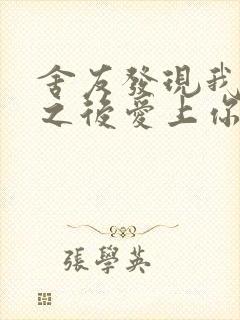 舍友發現我
之後愛上你
張學英